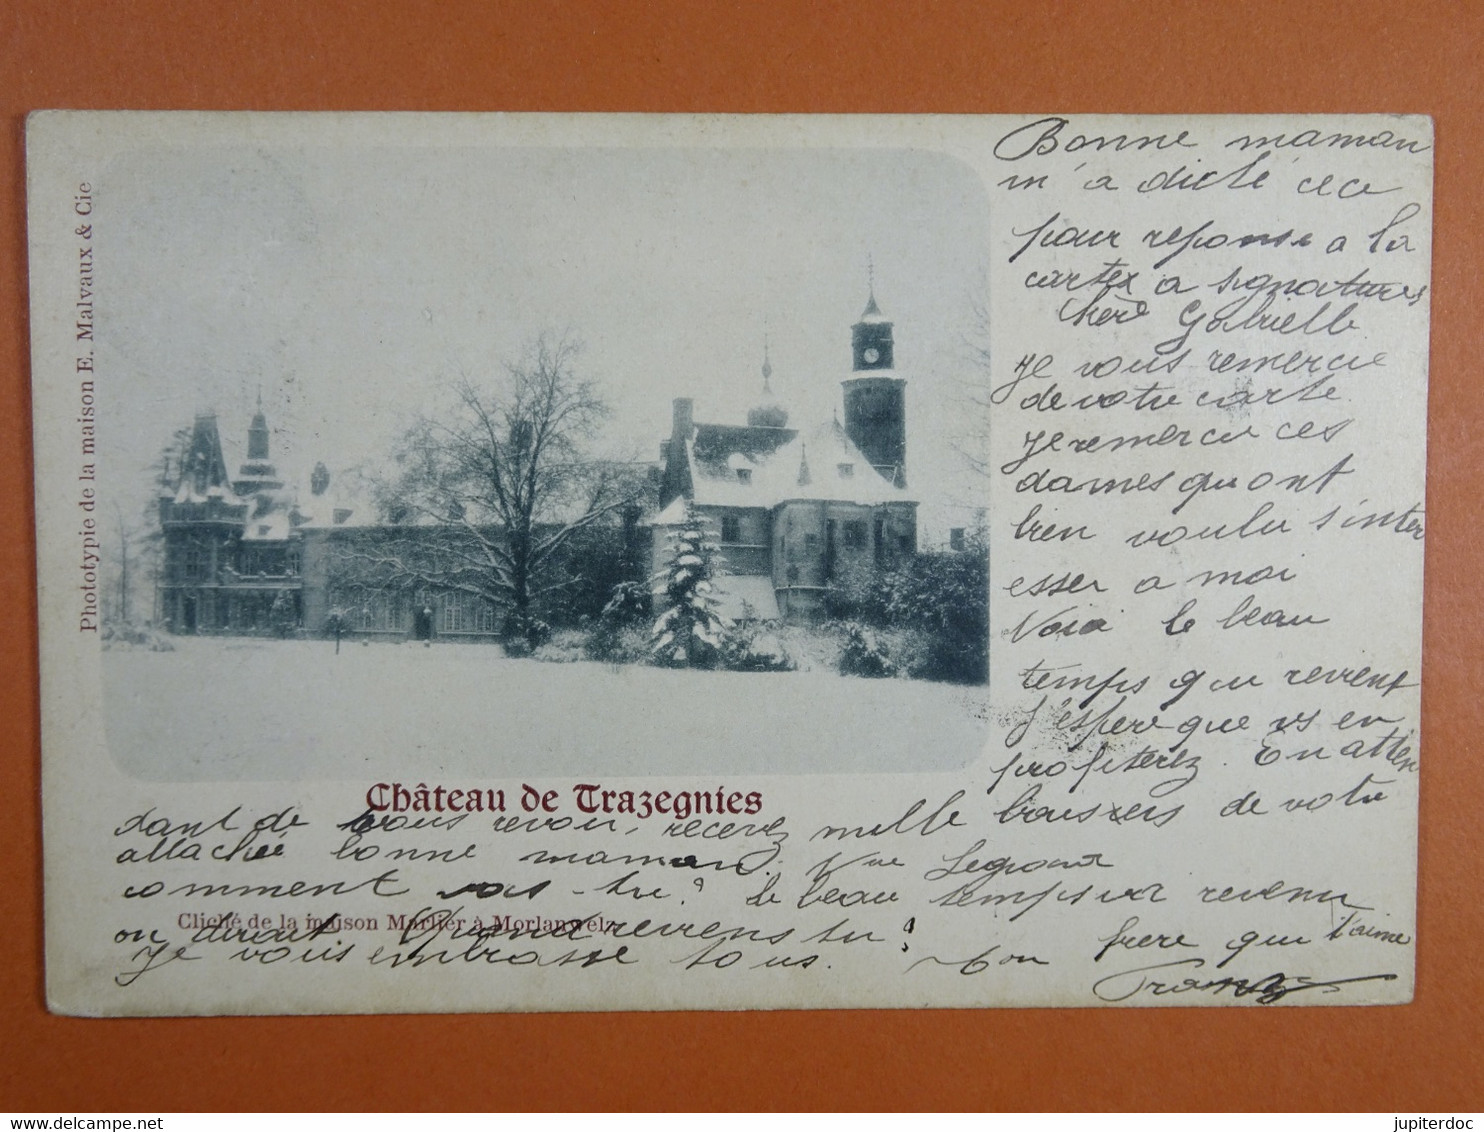 Phototypie de la maison E. Malvaux & Cie
Bonne maman
m'a dicté ceci
pour reponse a la
carte a signatures
Chère Gabrielle
Je vous remercie
de votre carte.
Je remercie ces
dames qui ont
bien voulu s'inter
esser a moi
Voici le beau
temps qui revient
J'espere que vs en
profiterez. En atten
Château de Trazegnies
dant de vous revoir, recevez mille baisers de votre
attachée bonne maman. Vve Legrand
comment vas-tu? le beau temps est revenu
Cliché de la maison Marlier à Morlanwelz
on dirait Quand reviens tu?
Je vous embrasse tous. Ton frere qui t'aime
Franz
jupiterdoc